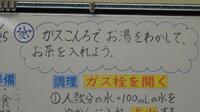 め ガスこんろで お湯をわかして、
お茶を入れよう。
準備
調理 ガス栓を開く
①人数分の水+100mLの水を